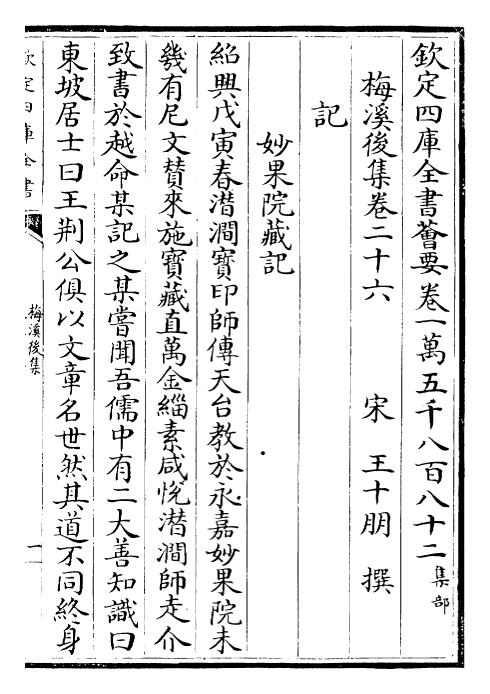 欽定四庫全書薈要卷一萬五千八百八十二集部
梅溪後集卷二十六　宋　王十朋　撰
記
妙果院藏記
紹興戊寅春潛澗寶印師傳天台教於永嘉妙果院未
幾有尼文贊來施寶藏直萬金緇素咸悅潛澗師走介
致書於越命某記之某嘗聞吾儒中有二大善知識曰
東坡居士曰王荆公俱以文章名世然其道不同終身
欽定四庫全書
梅溪後集
一